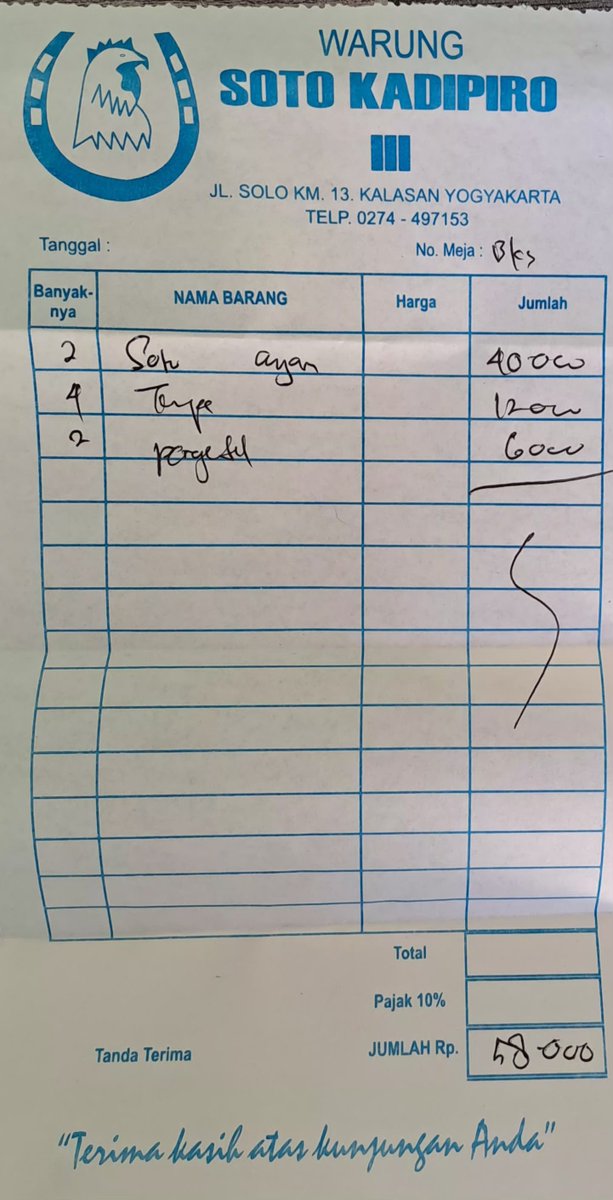 WARUNG
SOTO KADIPIRO
III
JL. SOLO KM. 13. KALASAN YOGYAKARTA
TELP. 0274 - 497153
Tanggal :
No. Meja : Bks
Banyak-nya NAMA BARANG Harga Jumlah
2 Soto ayam 40 000
4 Tempe 12 000
2 pergedel 6 000
Total
Pajak 10%
Tanda Terima JUMLAH Rp. 58 000
"Terima kasih atas kunjungan Anda"